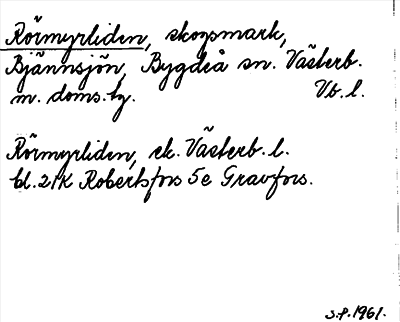 Rörmyrliden, skogsmark,
Bjännsjön, Bygdeå sn. Västerb.
m. doms.tg. Vb. l.
Rörmyrliden, ek. Västerb. l.
bl. 21K Robertsfors 5e Gravfors.
S.P. 1961.